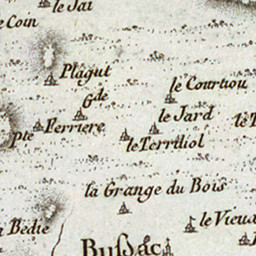 le Jai
le Coin
Plagut
le Courtiou
Gde
Ferriere
le Jard
Pte
le Terrillol
la Grange du Bois
le Vieux
la Bedie
Bussac